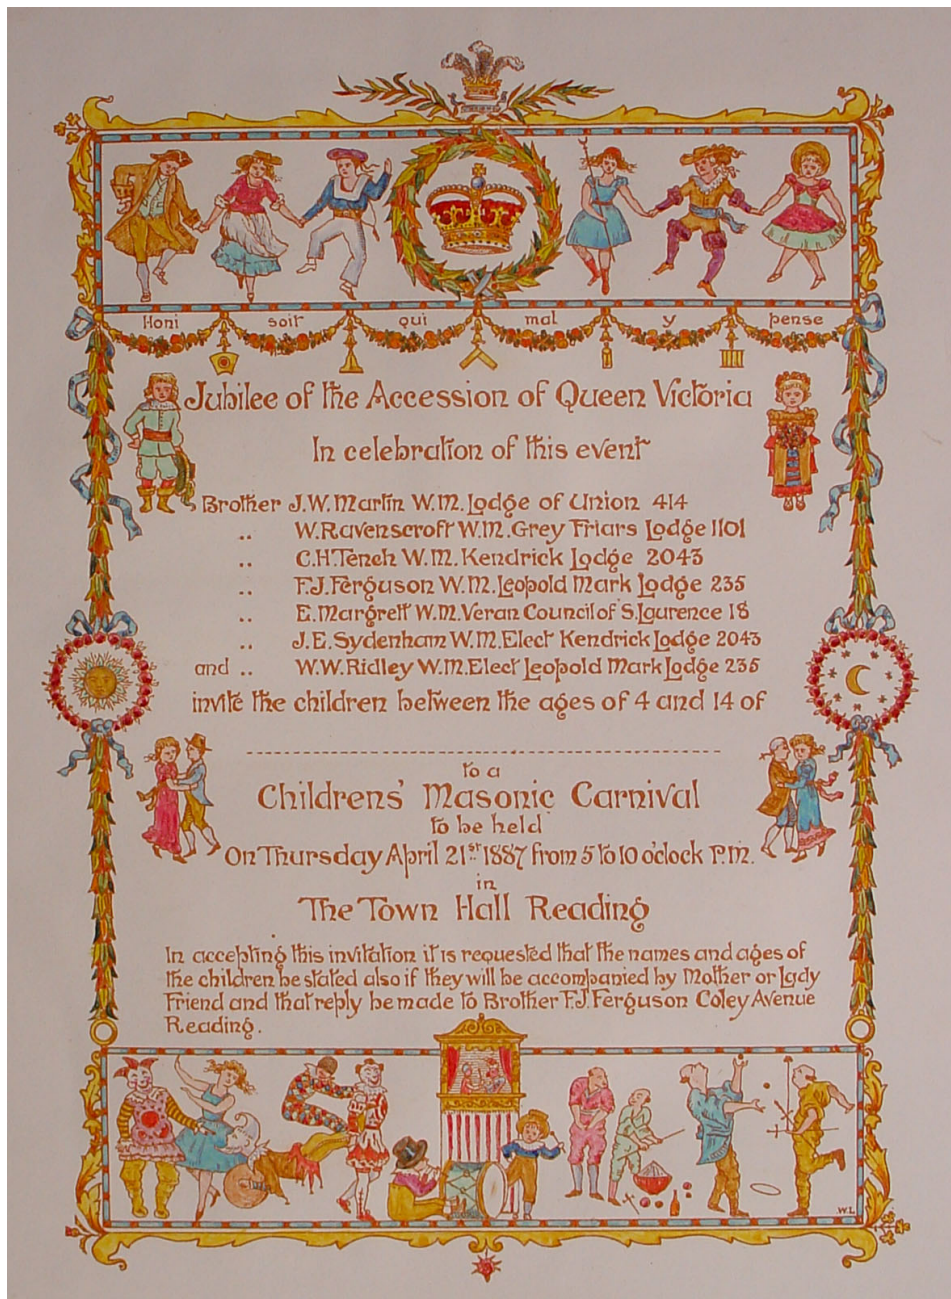 Honi soit qui mal y pense
Jubilee of the Accession of Queen Victoria
In celebration of this event
Brother J.W. Martin W.M. Lodge of Union 414
.. W. Ravenscroft W.M. Grey Friars Lodge 1101
.. C.H. Tench W.M. Kendrick Lodge 2043
.. F.J. Ferguson W.M. Leopold Mark Lodge 235
.. E. Margrett W.M. Veran Council of S. Laurence 18
.. J.E. Sydenham W.M. Elect Kendrick Lodge 2043
and .. W.W. Ridley W.M. Elect Leopold Mark Lodge 235
invite the children between the ages of 4 and 14 of
to a
Childrens' Masonic Carnival
to be held
On Thursday April 21st 1887 from 5 to 10 o'clock P.M.
in
The Town Hall Reading
In accepting this invitation it is requested that the names and ages of
the children be stated also if they will be accompanied by Mother or Lady
Friend and that reply be made to Brother F.J. Ferguson Coley Avenue
Reading.
W.L